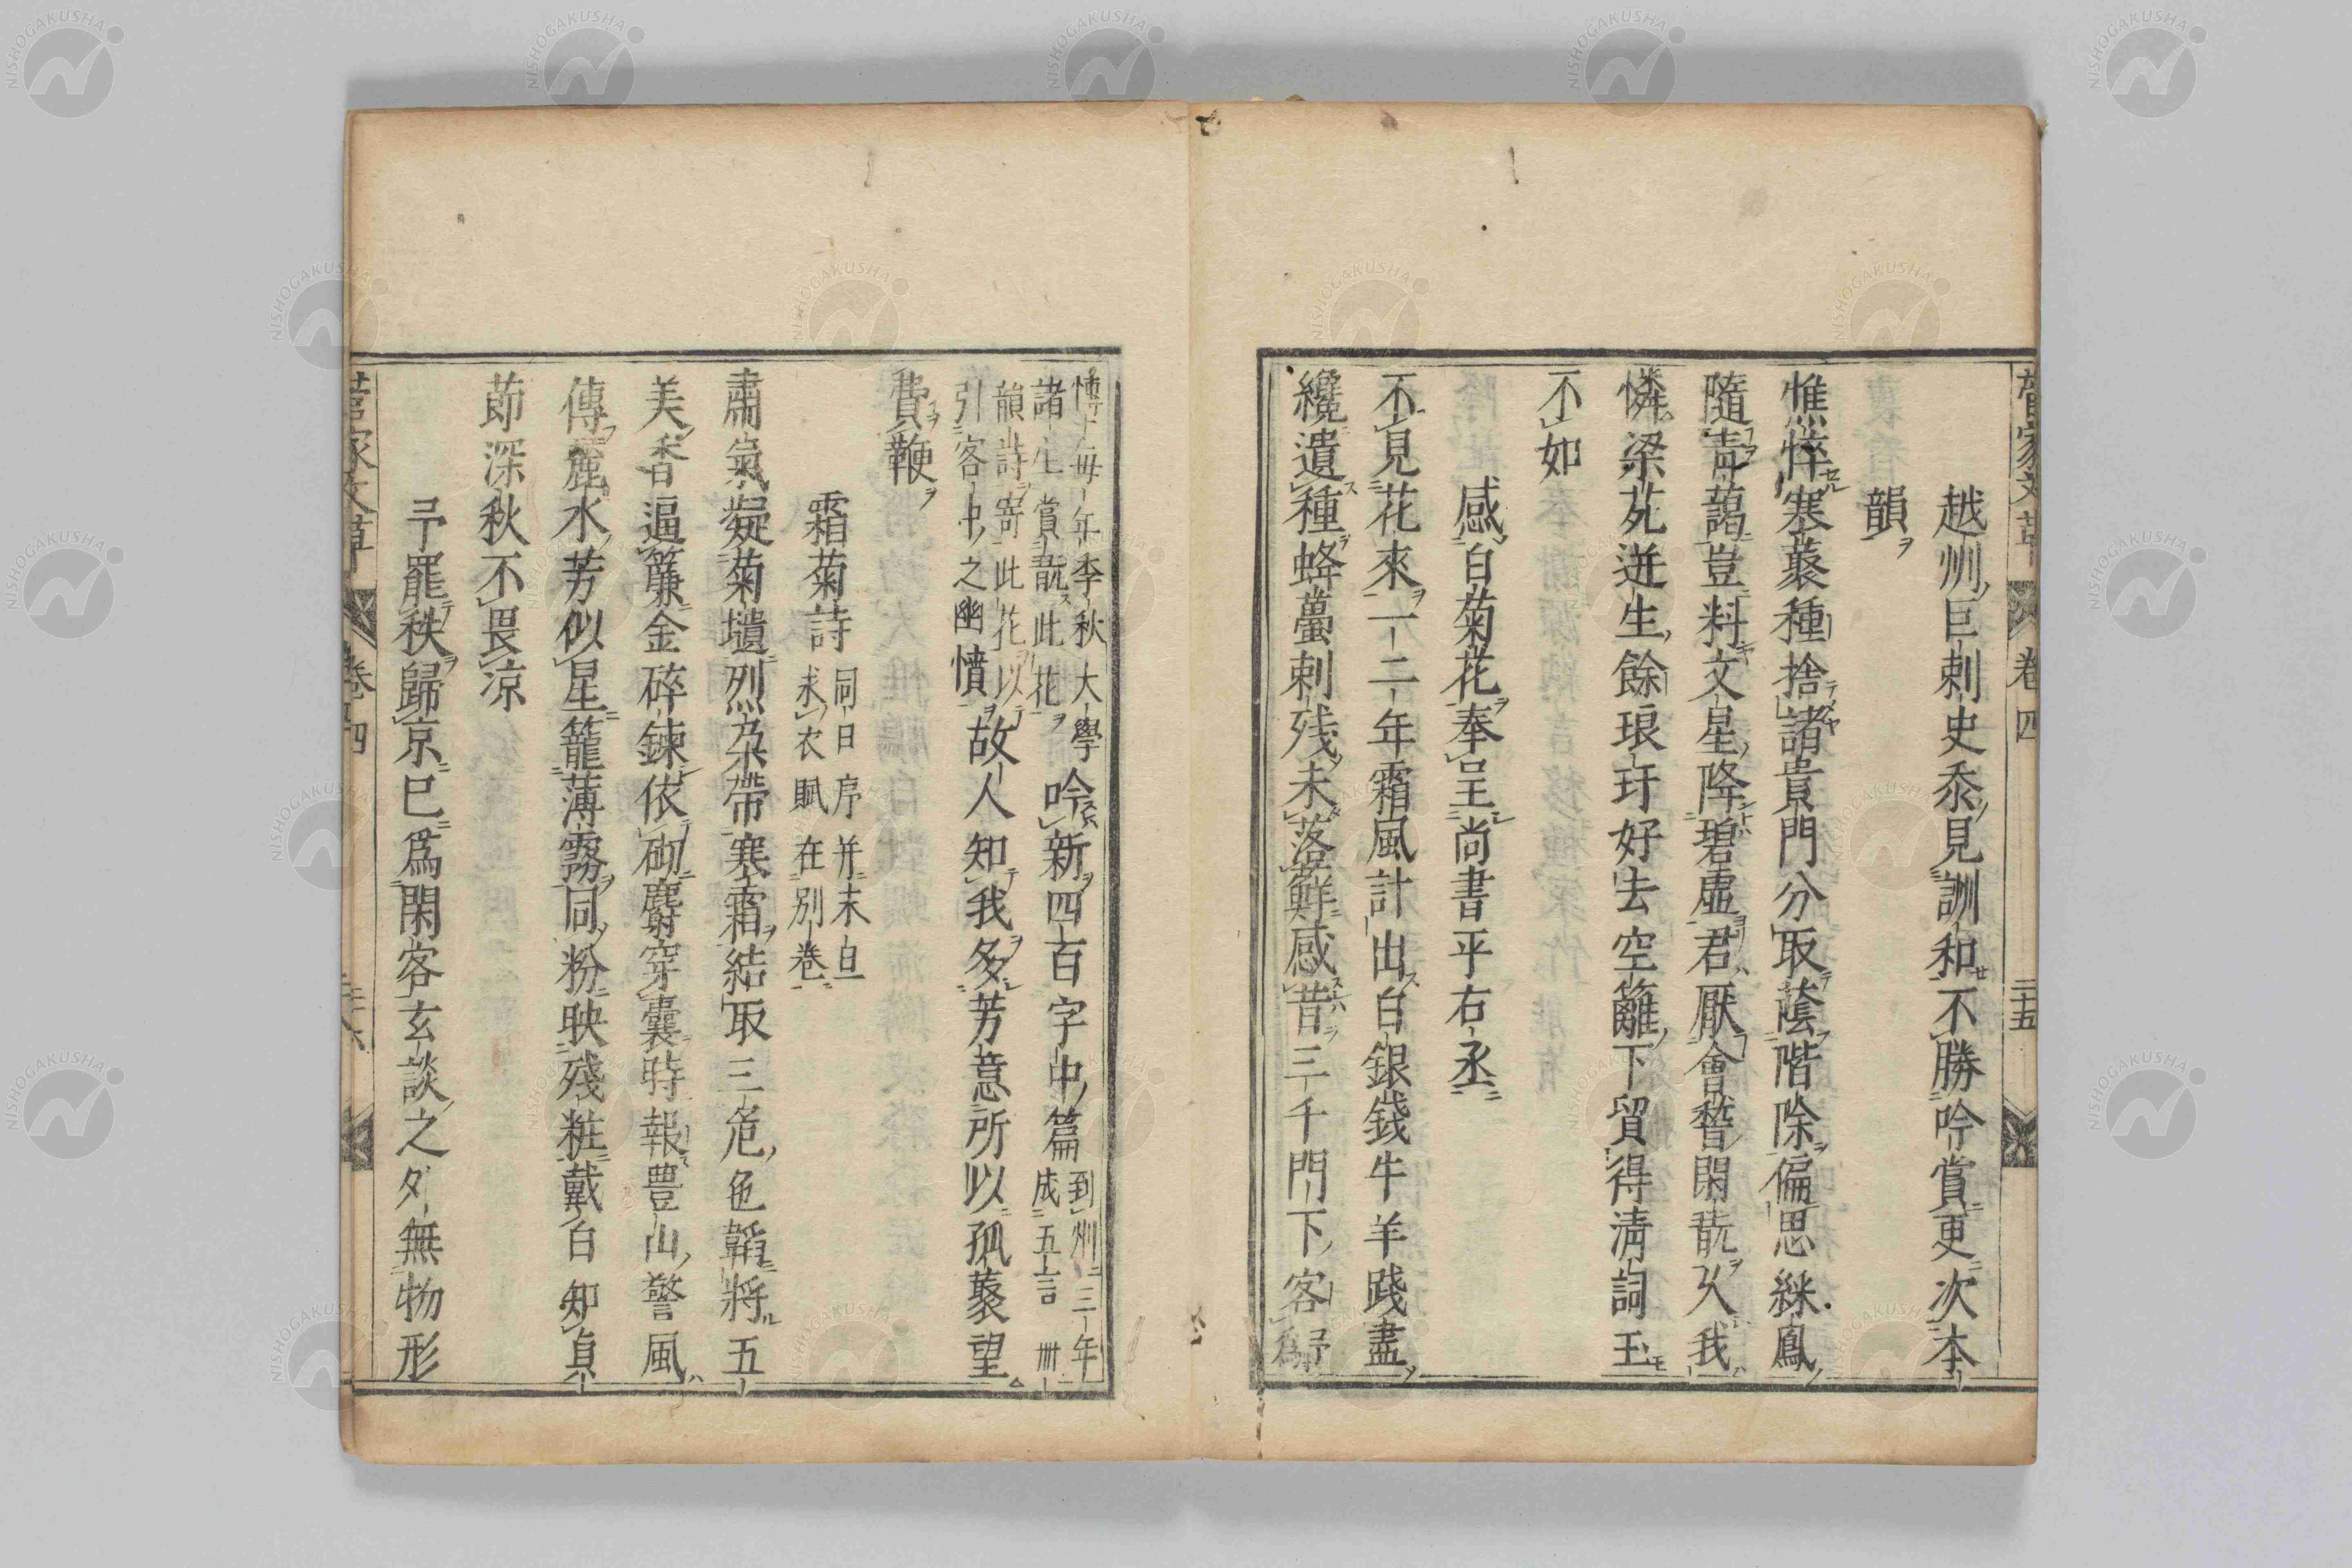 越州巨刺史忝見訓和不勝吟賞更次本
韻
憔悴寒藂種捨諸貴門分取蔭階除偏思綵鳳
隨青藹豈料文星降碧虛君厭會稽閑翫久我
憐梁苑迸生餘琅玕好去空籬下貿得淸詞玉
不如
感白菊花奉呈尚書平右丞
不見花來一二年霜風計出白銀錢牛羊踐盡
纔遺種蜂蠆刺殘未落鮮感昔三千門下客
博士每年季秋大學
諸生賞翫此花
吟新四百字中篇
到州三年
成五言卌
韻詩寄此花以
引客中之幽憤
故人知我多芳意所以孤藂望
費鞭
霜菊詩
同日序幷末旦
求衣賦在別卷
肅氣凝菊壇烈朶帶寒霜結取三危色韜將五
美香逼簾金碎鍊依砌麝穿囊時報豊山警風
傳麗水芳似星籠薄霧同粉映殘粧戴白知貞
節深秋不畏凉
予罷秩歸京已爲閑客玄談之外無物形
菅家文草
卷四
三十五
菅家文草
卷四